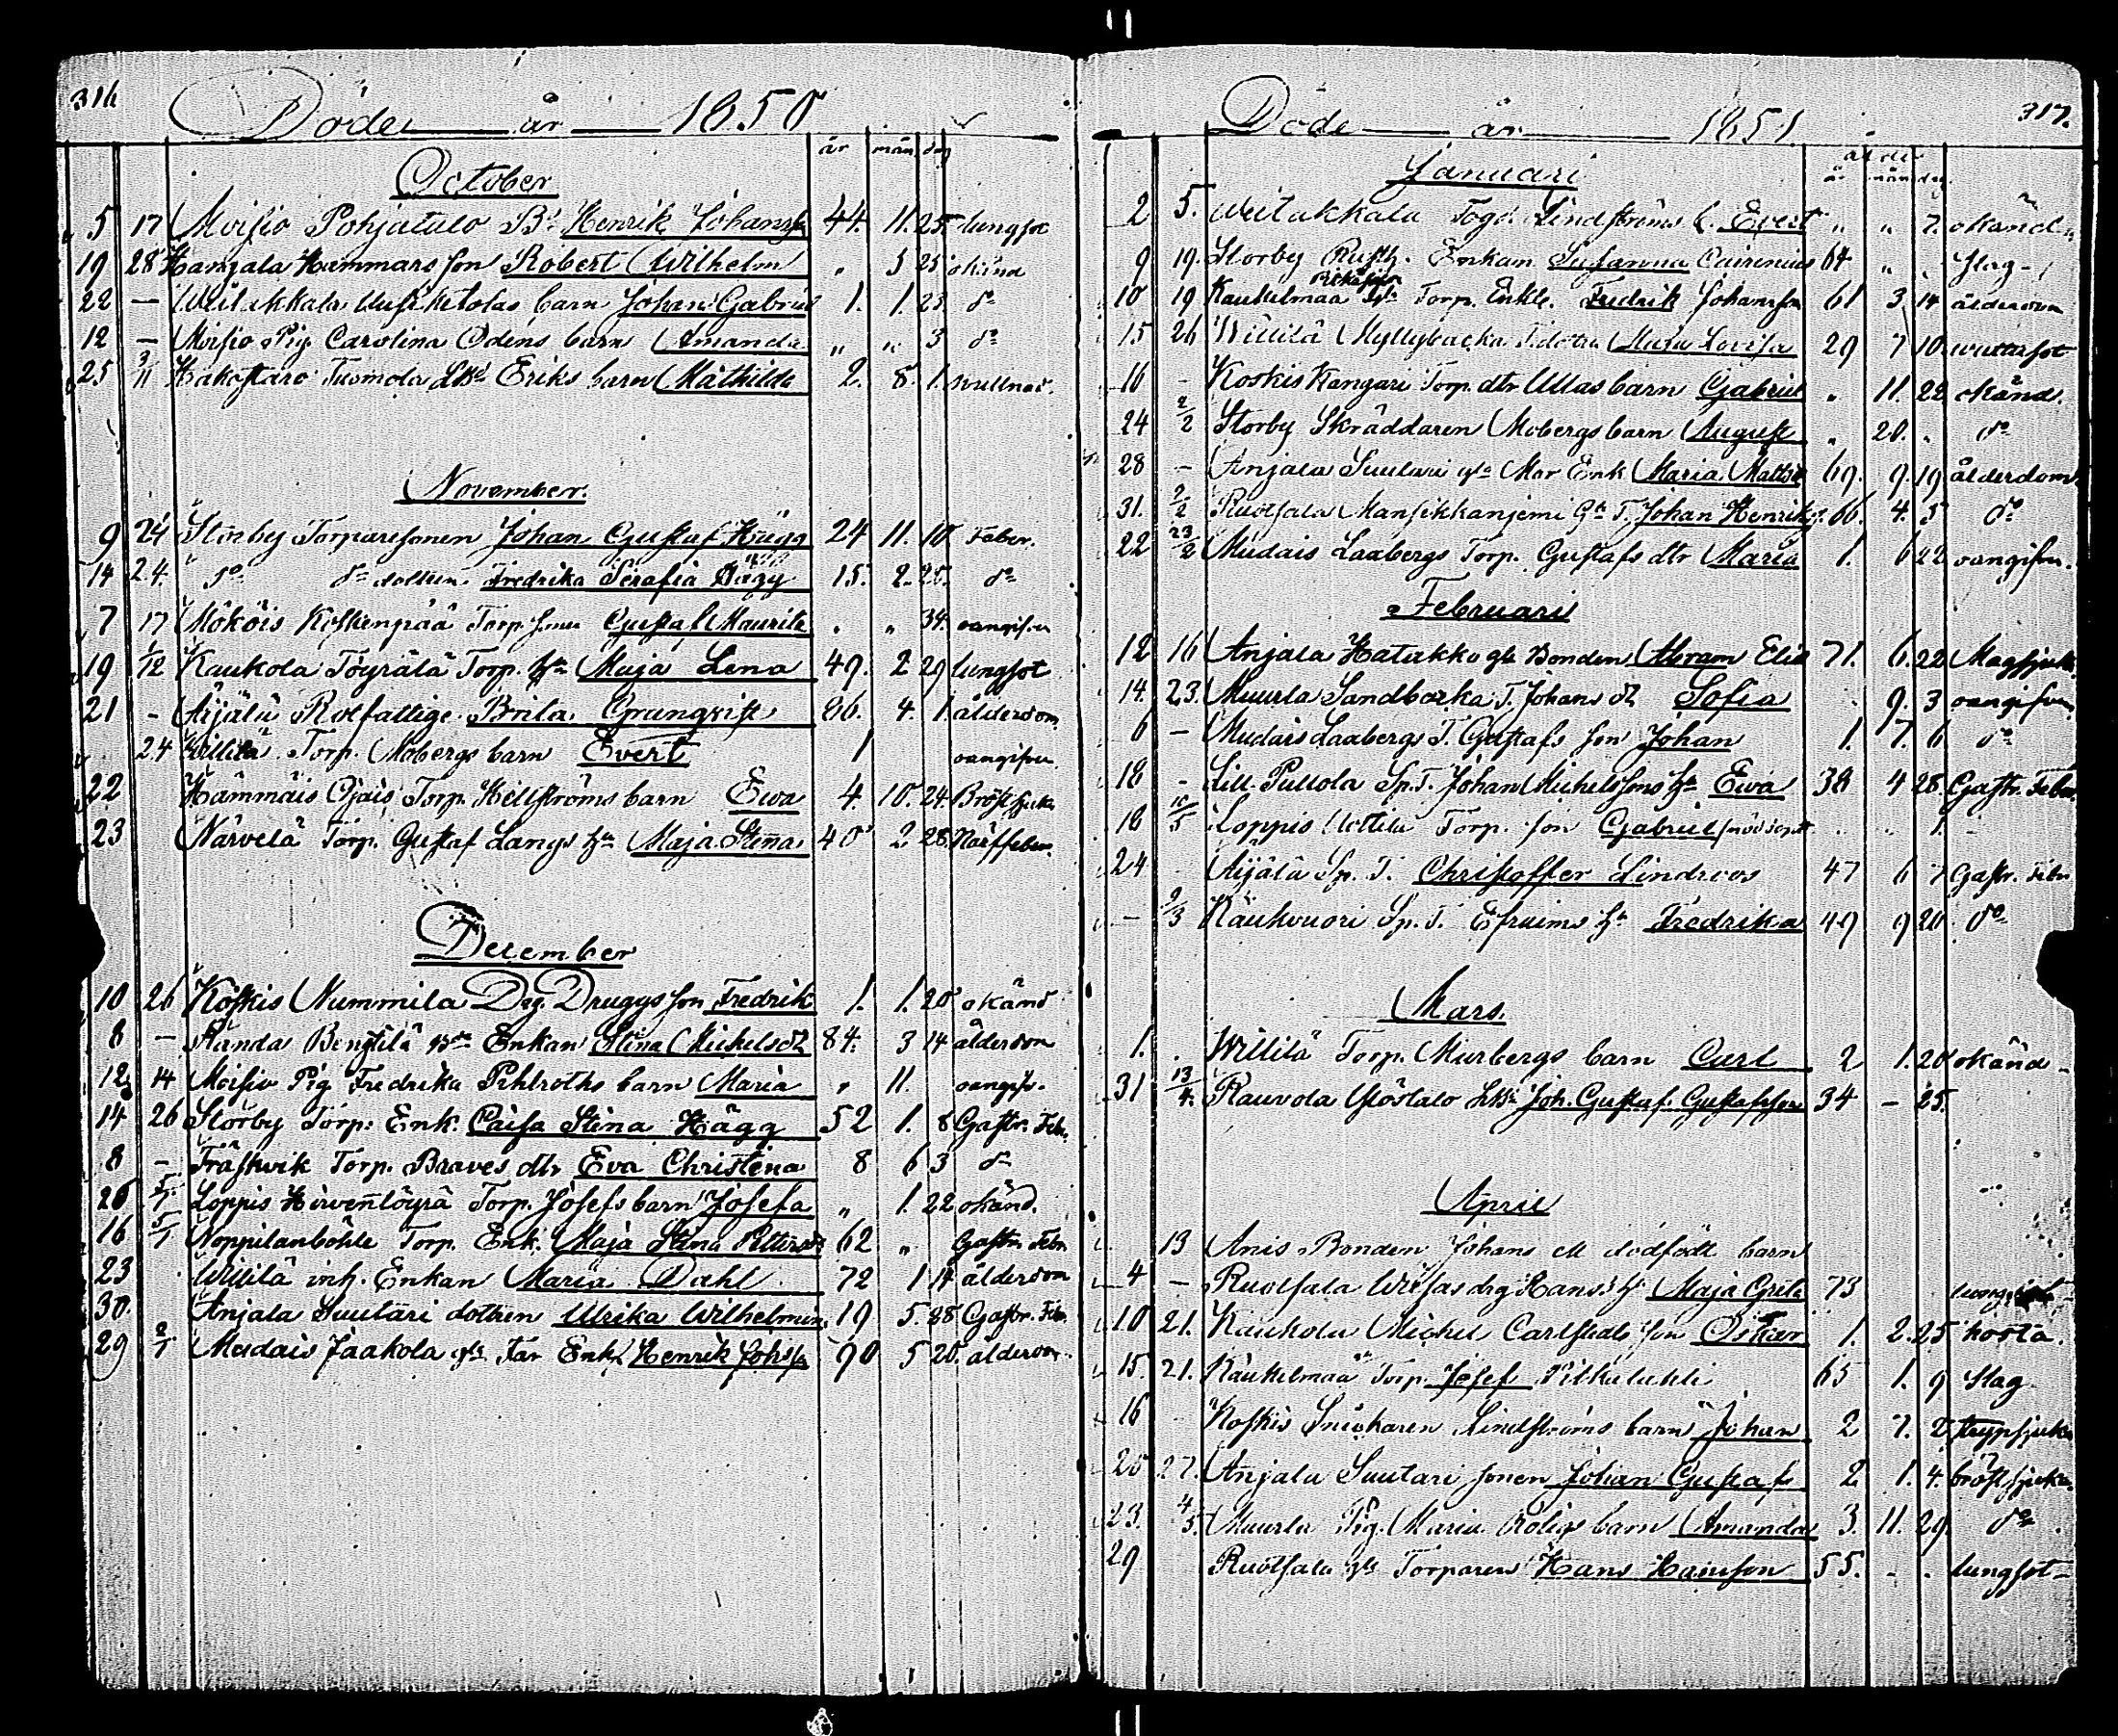 316
Döde år 1850
år mån dag
October
5 17 Moisio Pohjatalo Bd Henrik Johansson 44. 11. 25. lungsot
19 28 Hangala Hammars son Robert Wilhelm " 5 25 okänd
22 — barn Johan Gabriel 1. 1. 23. do
12 — Moisio Pig. Carolina Odéns barn Amanda " " 3 do
25 3/11 Hakostaro Tuomola Eriks barn Mathilda 2. 8. 1.
November.
9 24 Storby Torparesonen Johan Gustaf Hägg 24 11. 10. Feber.
14 24. do do dottren Fredrika Serafia Hägg 15. 2. 25. do
7 17 Mököis Koskenpää Torp. Gustaf Maurits " " 34. oangifven
19 1/12 Kaukola Töyrälä Torp. hu Maja Lena 49. 2 29 lungsot
21 - Äijälä Rotfattige Brita Grunqvist 86. 4. 1. ålderdom
24 Willilä Torp. Mobergs barn Evert 1 oangifven.
22 Hämmäis Ojais Torp. Hellströms barn Ewa 4. 10. 24. Bröstsjuka
23 Närvelä Torp. Gustaf Langs hu Maja Stina 40 2. 28.
December
10 26 Koskis Nummila Drg. Druggs son Fredrik 1. 1. 20 okänd
8 — Bengtilä Enkan Stina Michelsdr 84. 3 14 ålderdom
12 14 Moisio Pig Fredrika Pihlroths barn Maria " 11. oangifv.
14 26 Storby Torp. Enk. Caisa Stina Hägg 52 1. 8 Gastr. Feb.
8 — Träskvik Torp. Braves dtr Eva Christina 8 6 3 do
26 5/1 Loppis Hirventöyrä Torp. Josefs barn Josefa " 1. 22 okänd.
16 5/1 Noppilanböhle Torp. Enk. Maja Stina 62 " Gastr. Febr
23 Willilä inh. Enkan Maria Dahl 72 1 14 ålderdom
30. Anjala Suutari dottren Ulrika Wilhelmina 19 5. 28 Gastr. Feb.
29 2/1 Mudais Jaakola gla Far Enkl. Henrik Johsson 90 5 20. ålderdom.
317.
Döde år 1851.
ålder
år mån dag.
Januari
2 5. Lindströms b. Evert " " 7. okänd
9 19. Storby Rusth. Enkan Susanna Cairenius 64 " " slag
10 19 Kaukelmaa Torp. Enkl. Fredrik Johansson 61 3 14 ålderdom
15 26 Willilä Myllybacka T.dotter Maja Lovisa 29 7 10
16 - Koskis Kangari Torp. dtr Ullas barn Gabriel " 11. 22 okänd.
24 2/2 Storby Skräddaren Mobergs barn August " 20. " do
28 - Anjala Suutari gla Mor Enk Maria Mattsdr 69. 9. 19 ålderdom
31. 2/2 Ruotsala Mansikkaniemi Gla T. Johan Henriks 66. 4. 5 do
22 23/2 Mudais Laabergs Torp. Gustafs dtr Maria 1. 6 22 oangifven.
Februari
12 16 Anjala Hatakko gla Bonden Abram Elia 71. 6. 22 Magsjuka
14. 23. Muurla Sandbacka T. Johans dr Sofia 9. 3 oangifven
6 — Mudais Laabergs T. Gustafs son Johan 1. 7. 6 do
18 - Lill Pullola Sp. T. Johan Michelssons hu Ewa 38 4 28. Gastr. Feber.
18 10/5 Loppis Uotila Torp. son Gabriel nöddöpt " " 1. -
24 Äijälä Sp. T. Christoffer Lindroos 47 6 7 Gastr. Febr
— 2/3 Kaukvuori Sp. T. Efraims hu Fredrika 49 9 20. do
Mars.
1. . Willilä Torp. Murbergs barn Carl 2 1. 20 okänd
31 13/4. Rauvola Joh. Gustaf Gustafsson 34 — 25.
April
13 Anis Bonden Johans dödfödt barn
4 — Ruotsala drg Hans' h. Maja Greta 73
10 21. Kaukola Michel Carlstedts son Oskar 1. 2. 25 hosta.
15. 21. Kaukelmaa Torp. Josef 65 1. 9 slag
16 Koskis Snickaren Lindströms barn Johan 2 7. 2
20 27. Anjala Suutari sonen Johan Gustaf 2 1. 4. bröstsjuka.
23. 4/5. Muurla Pig. Maria Roligs barn Amanda 3. 11. 29. do
29 Ruotsala gla Torparen Hans Hansson 55. - . lungsot